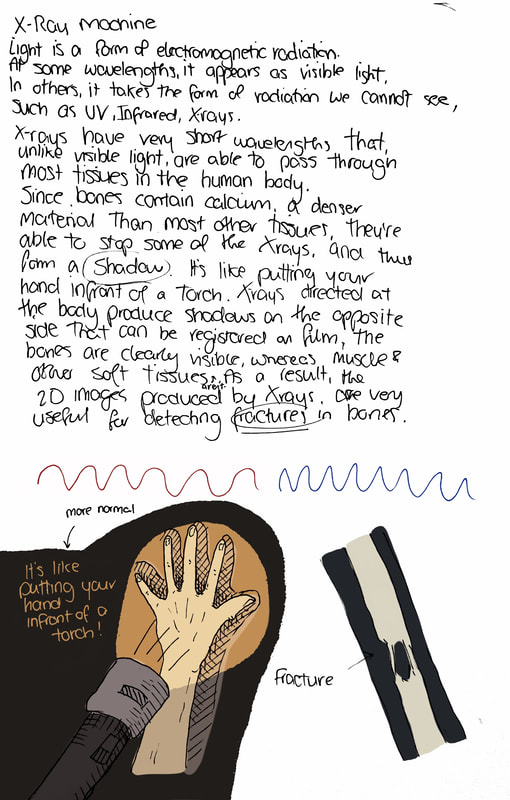 X-Ray Machine
Light is a form of electromagnetic radiation.
At some wavelengths, it appears as visible light,
In others, it takes the form of radiation we cannot see,
Such as UV, Infrared, Xrays.
X-rays have very short wavelengths that,
unlike visible light, are able to pass through
most tissues in the human body.
Since bones contain calcium, a denser
material than most other tissues, they're
able to stop some of the Xrays, and thus
form a Shadow. It's like putting your
hand infront of a torch. Xrays directed at
the body produce shadows on the opposite
side that can be registered on film, the
bones are clearly visible, whereas muscle &
other soft tissues aren't. As a result, the
2D images produced by Xrays, are very
useful for detecting fractures in bones.
more normal
It's like
putting your
hand
infront of a
torch!
fracture